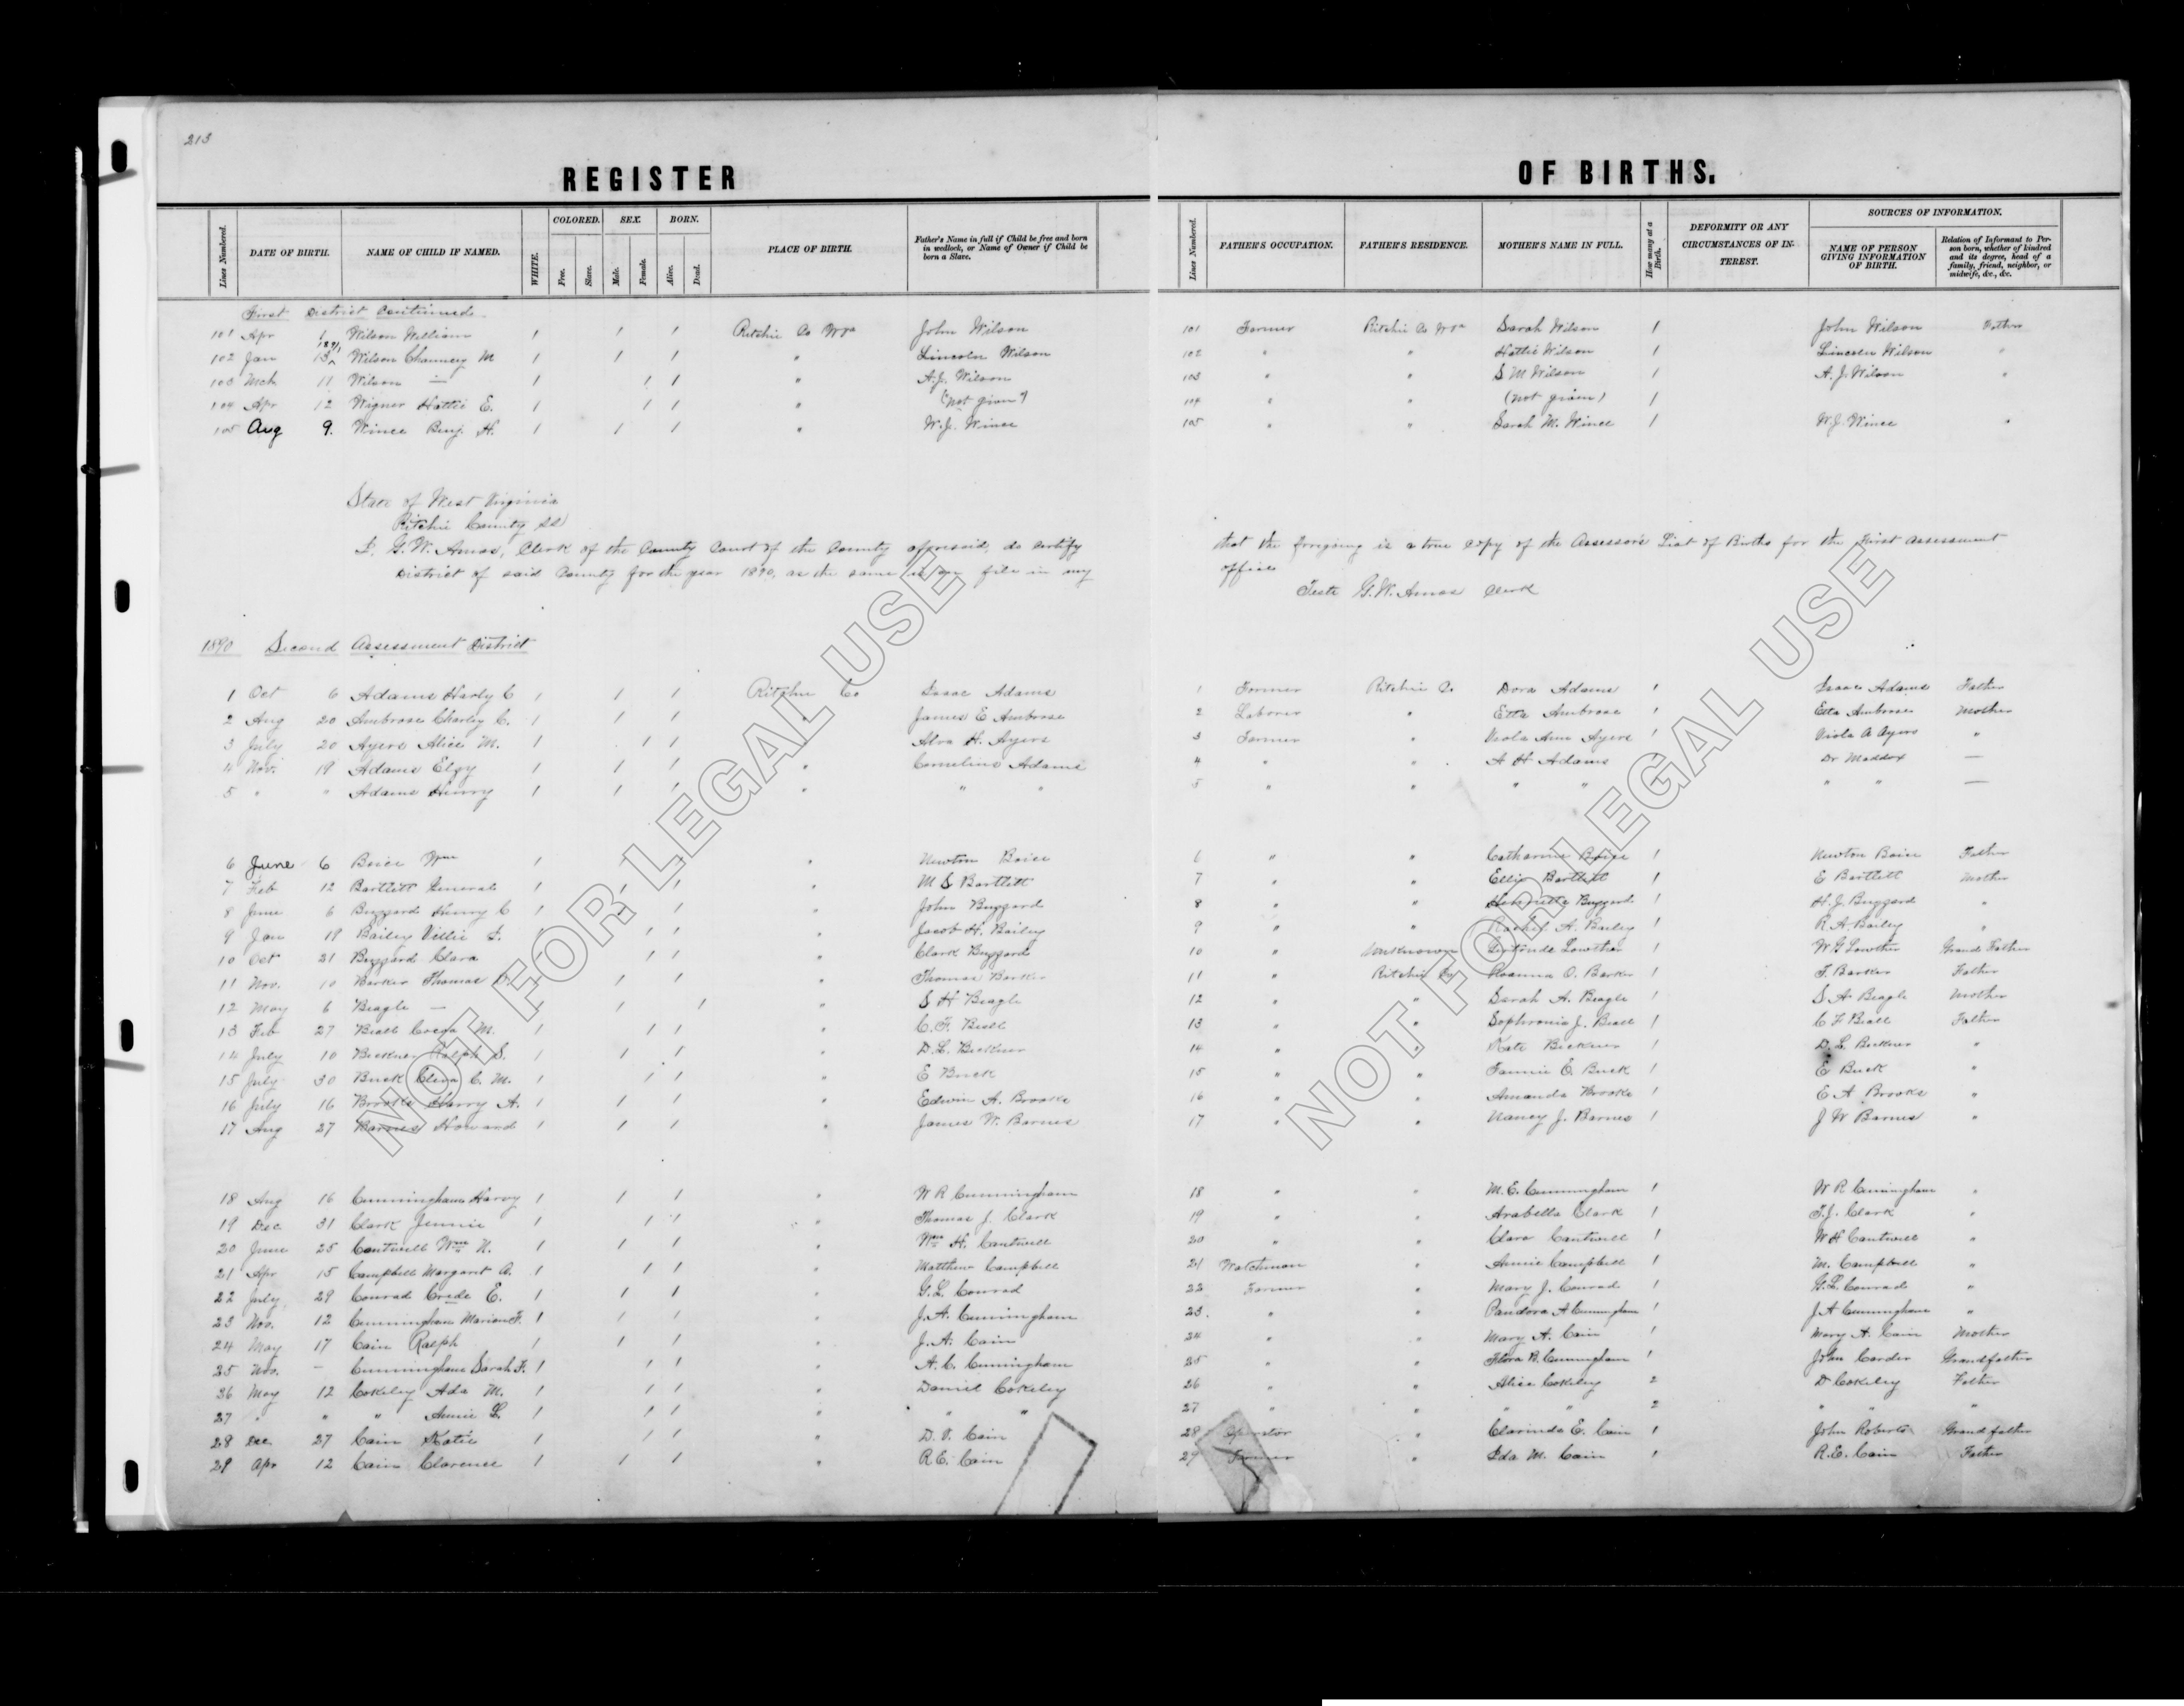 213
REGISTER OF BIRTHS.
Lines Numbered. DATE OF BIRTH. NAME OF CHILD IF NAMED. WHITE. COLORED. Free. Slave. SEX. Male. Female. BORN. Alive. Dead. PLACE OF BIRTH. Father's Name in full if Child be free and born in wedlock, or Name of Owner if Child be born a Slave. Lines Numbered. FATHER'S OCCUPATION. FATHER'S RESIDENCE. MOTHER'S NAME IN FULL. How many at a Birth. DEFORMITY OR ANY CIRCUMSTANCES OF INTEREST. SOURCES OF INFORMATION. NAME OF PERSON GIVING INFORMATION OF BIRTH. Relation of Informant to Person born, whether of kindred and its degree, head of a family, friend, neighbor, or midwife, &c., &c.
First District Continued
101 Apr 6 Wilson William 1 1 1 Ritchie Co WVa John Wilson 101 Farmer Ritchie Co WVa Sarah Wilson 1 John Wilson Father
102 Jan 13 1891 Wilson Chauncey M 1 1 1 " Lincoln Wilson 102 " " Hattie Wilson 1 Lincoln Wilson "
103 Mch 11 Wilson — 1 1 1 " A.J. Wilson 103 " " S M Wilson 1 A.J. Wilson "
104 Apr 12 Wigner Hattie E. 1 1 1 " (not given) 104 " " (not given) 1
105 Aug 9. Wince Benj. H. 1 1 1 " W.J. Wince 105 " " Sarah M. Wince 1 W.J. Wince "
State of West Virginia
Ritchie County SS
I. G.W. Amos, Clerk of the County Court of the County aforesaid, do certify that the foregoing is a true copy of the Assessors List of Births for the First Assessment
District of said County for the year 1890, as the same is on file in my office
Teste G.W. Amos Clerk
1890 Second Assessment District
1 Oct 6 Adams Harly C 1 1 1 Ritchie Co Isaac Adams 1 Farmer Ritchie Co. Dora Adams 1 Isaac Adams Father
2 Aug 20 Ambrose Charley C. 1 1 1 " James E Ambrose 2 Laborer " Etta Ambrose 1 Etta Ambrose Mother
3 July 20 Ayers Alice M. 1 1 1 " Alva H. Ayers 3 Farmer " Viola Ann Ayers 1 Viola A Ayers "
4 Nov. 19 Adams Elzy 1 1 1 " Cornelius Adams 4 " " A H Adams Dr Maddox —
5 " " Adams Henry 1 1 1 " " " 5 " " " " " " —
6 June 6 Boice Wm 1 1 1 " Newton Boice 6 " " Catharine Boice 1 Newton Boice Father
7 Feb 12 Bartlett General 1 1 1 " M S Bartlett 7 " " Ellie Bartlett 1 E Bartlett Mother
8 June 6 Buzzard Henry C 1 1 1 " John Buzzard 8 " " Henrietta Buzzard 1 H.J. Buzzard "
9 Jan 19 Bailey Villie I. 1 1 1 " Jacob H. Bailey 9 " " Rachel A. Bailey 1 R A Bailey "
10 Oct 21 Buzzard Clara 1 1 1 " Clark Buzzard 10 " Unknown Lowther 1 W G Lowther Grand Father
11 Nov. 10 Barker Thomas D. 1 1 1 " Thomas Barker 11 " Ritchie Co Roanna O. Barker 1 T. Barker Father
12 May 6 Beagle — 1 1 1 " S H Beagle 12 " " Sarah A. Beagle 1 S A Beagle Mother
13 Feb 27 Beall M. 1 1 1 " C. F. Beall 13 " " Sophronia J. Beall 1 C F Beall Father
14 July 10 Bickner Ralph S. 1 1 1 " D.L. Bickner 14 " " Kate Bickner 1 D.L. Bickner "
15 July 30 Buck Cleva C. M. 1 1 1 " E Buck 15 " " Fannie E. Buck 1 E Buck "
16 July 16 Brooke Harry A. 1 1 1 " Edwin A. Brooke 16 " " Amanda Brooke 1 E A Brooke "
17 Aug 27 Barnes Howard 1 1 1 " James W. Barnes 17 " " Nancy J. Barnes 1 J W Barnes "
18 Aug 16 Cunningham Harvy 1 1 1 " W R Cunningham 18 " " M. E. Cunningham 1 W R Cuningham "
19 Dec 31 Clark Jennie 1 1 1 " Thomas J. Clark 19 " " Arabella Clark 1 T.J. Clark "
20 June 25 Cantwell Wm N. 1 1 1 " Wm H. Cantwell 20 " " Clara Cantwell 1 W H Cantwell "
21 Apr 15 Campbell Margaret A. 1 1 1 " Matthew Campbell 21 Watchman " Annie Campbell 1 M. Campbell "
22 July 29 Conrad Crede E. 1 1 1 " G.L. Conrad 22 Farmer " Mary J. Conrad 1 G.L. Conrad "
23 Nov. 12 Cunningham Marion F. 1 1 1 " J.A. Cunningham 23. " " Pandora A Cunningham 1 J A Cunningham "
24 May 17 Cain Ralph 1 1 1 " J.A. Cain 24 " " Mary A. Cain 1 Mary A. Cain Mother
25 Nov. — Cunningham Sarah F. 1 1 1 " A.C. Cunningham 25 " " Flora B. Cunningham 1 John Carder Grandfather
26 May 12 Cokeley Ada M. 1 1 1 " Daniel Cokeley 26 " " Alice Cokeley 2 D Cokeley Father
27 " " " Annie L. 1 1 1 " " " 27 " " " " 2 " " "
28 Dec 27 Cain Katie 1 1 1 " D. V. Cain 28 Operator " Clarinda E. Cain 1 John Roberts Grandfather
29 Apr 12 Cain Clarence 1 1 1 " R.E. Cain 29 Farmer " Ida M. Cain 1 R.E. Cain Father
NOT FOR LEGAL USE
NOT FOR LEGAL USE